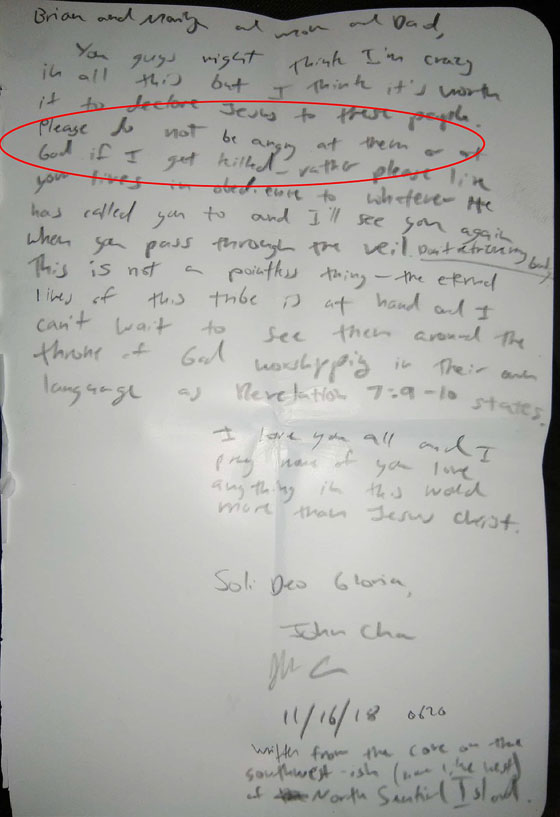 Brian and and mom and Dad,
You guys might think I'm crazy
in all this but I think it's worth
it to declare Jesus to these people.
Please do not be angry at them or at
God if I get killed - rather please live
your lives in obedience to whatever He
has called you to and I'll see you again
when you pass through the veil. Don't retrieve my body
This is not a pointless thing - the eternal
lives of this tribe is at hand and I
can't wait to see them around the
throne of God worshipping in their own
language as Revelation 7:9-10 states.
I love you all and I
pray none of you love
anything in this world
more than Jesus Christ.
Soli Deo Gloria,
John Chau
11/16/18 0620
written from the cove on the
southwest-ish (more like west)
of North Sentinel Island.